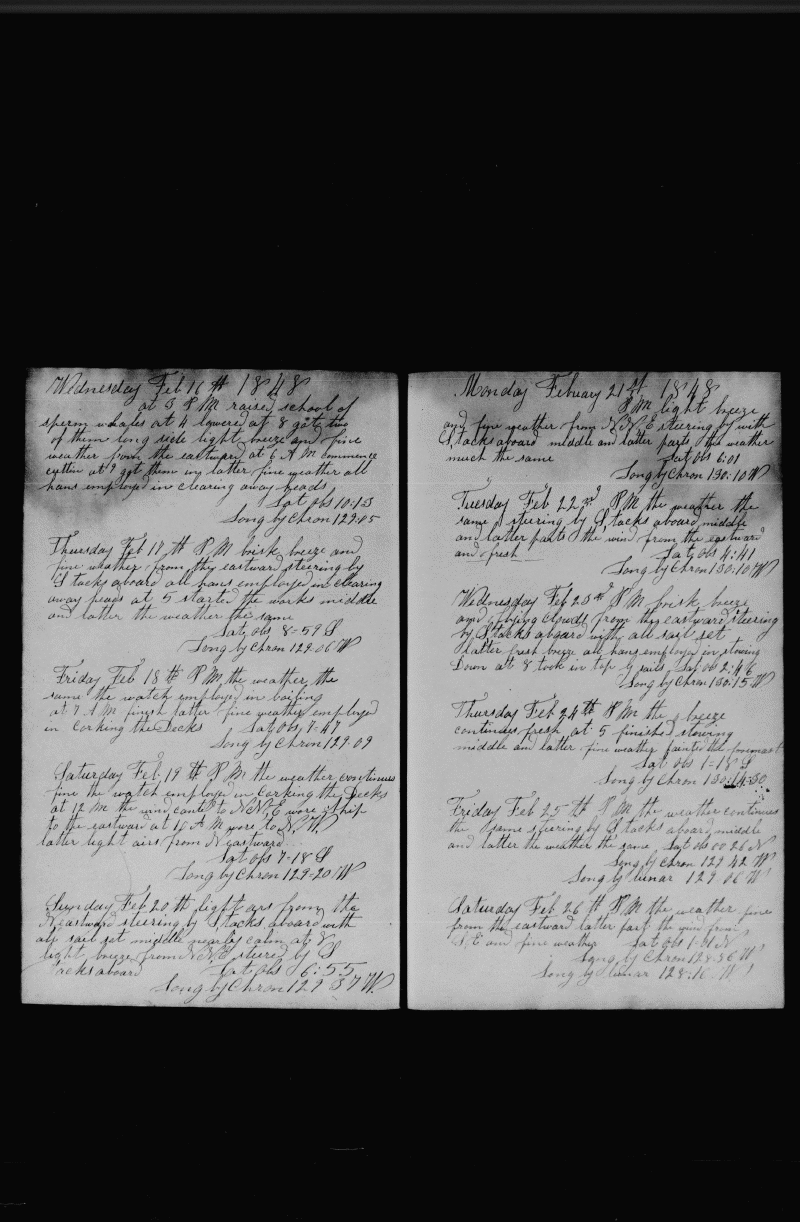 Wednesday Feb 16 th 1848
at 3 P M raised school of
sperm whales at 4 lowered at 8 got two
of them long side light breeze and fine
weather from the eastward at 6 A M commence
cuttin at 9 got them in latter fine weather all
hans employed in clearing away heads
Lat obs 10:13
Long by Chron 129:05
Thursday Feb 17 th P M brisk breeze and
fine weather from the eastward steering by
S tacks aboard all hans employed in clearing
away heads at 5 started the works middle
and latter the weather the same
Lat obs 8=59 S
Long by Chron 129:06 W
Friday Feb 18 th P M the weather the
same the watch employed in boiling
at 7 A M finish latter fine weather employed
in corking the Decks Lat obs 7:47
Long by Chron 129:09
Saturday Feb 19 th P M the weather continues
fine the watch employed in corking the Decks
at 12 M the wind cants to N N E wore ship
to the eastward at 10 A M wore to N. W.
latter light airs from N eastward
Lat obs 7-18 S
Long by Chron 129-20 W
Sunday Feb 20 th light airs from the
N eastward steering by S tacks aboard with
all sail set middle nearly calm at 8
light breeze from N N E steered by S
tacks aboard Lat obs 6:55
Long by Chron 129 37 W.
Monday Febuary 21 st 1848
P M light breeze
and fine weather from N N E steering by with
S tacks aboard middle and latter parts the weather
much the same Lat obs 6:01
Long by Chron 130:10 W
Tuesday Feb 22 nd P M the weather the
same steering by S tacks aboard middle
and latter parts the wind from the eastward
and fresh Lat obs 4:41
Long by Chron 130:10 W
Wednesday Feb 23 d P M brisk breeze
and flying clouds from the eastward steering
by S tacks aboard with all sail set
latter fresh breeze all hans employed in stowing
Down at 8 took in top g sails Lat obs 2:46
Long by Chron 130:15 W
Thursday Feb 24 th P M the breeze
continues fresh at 5 finished stowing
middle and latter fine weather painted the foremast
Lat obs 1=18 S
Long by Chron 130:14:30
Friday Feb 25 th P M the weather continues
the same steering by S tacks aboard middle
and latter the weather the same Lat obs 00 26 N
Long by Chron 129 42 W
Long by lunar 129 06 W
Saturday Feb 26 th P M the weather fine
from the eastward latter part the wind from
S. E and fine weather Lat obs 1:01 N
Long by Chron 128:36 W
Long by lunar 128:16 W